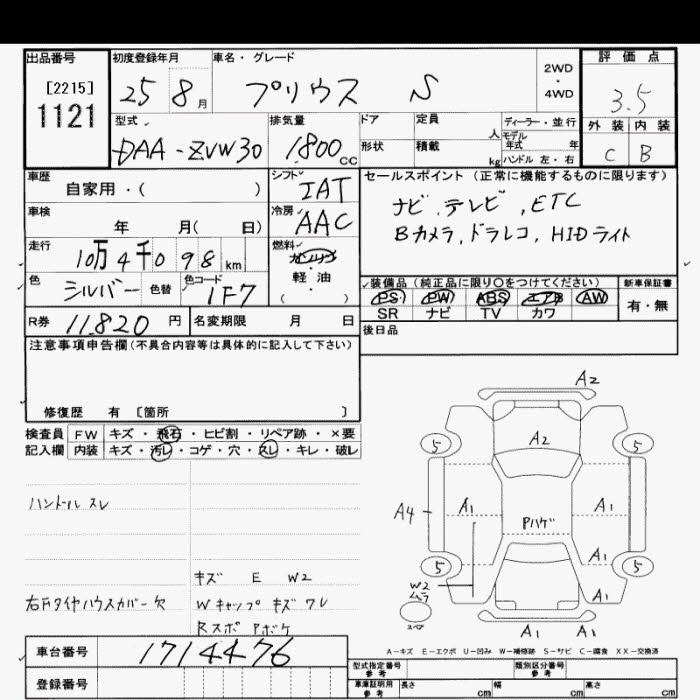 出品番号 初度登録年月 車名・グレード 評価点
[2215] 25 8月 プリウス S 2WD・4WD 3.5
1121
型式 排気量 ドア 定員 人 ディーラー・並行 外装 内装
DAA-ZVW30 1800cc 形状 積載 kg モデル年式 年 ハンドル 左・右 C B
車歴 自家用・( ) シフト IAT セールスポイント (正常に機能するものに限ります)
車検 年 月( 日) 冷房 AAC ナビ、テレビ、ETC
走行 10万4千098km 燃料 ガソリン・軽油・( ) Bカメラ、ドラレコ、HIDライト
色 シルバー 色替 色コード 1F7
装備品 (純正品に限り○をつけてください) 新車保証書
PS PW ABS エアB AW 有・無
SR ナビ TV カワ
R券 11,820円 名変期限 月 日 後日品
注意事項申告欄(不具合内容等は具体的に記入して下さい)
修復歴 有 [箇所 ]
検査員 FW キズ・飛石・ヒビ割・リペア跡・×要
記入欄 内装 キズ・汚レ・コゲ・穴・スレ・キレ・破レ
A2
5 A2 5
A4 A1 Pハゲ A1
5 A1 5
W2 ムラ A1
スペア A1 A1
ハンドル スレ
キズ E W2
右Fタイヤハウスカバー欠 Wキャップ キズ ワレ
Rスポ Pボケ
A-キズ E-エクボ U-凹み W-補修跡 S-サビ C-腐食 XX-交換済
車台番号 1714476
型式指定番号 参考 類別区分番号 参考
登録番号 車庫証明用 参考 長さ cm 幅 cm 高さ cm